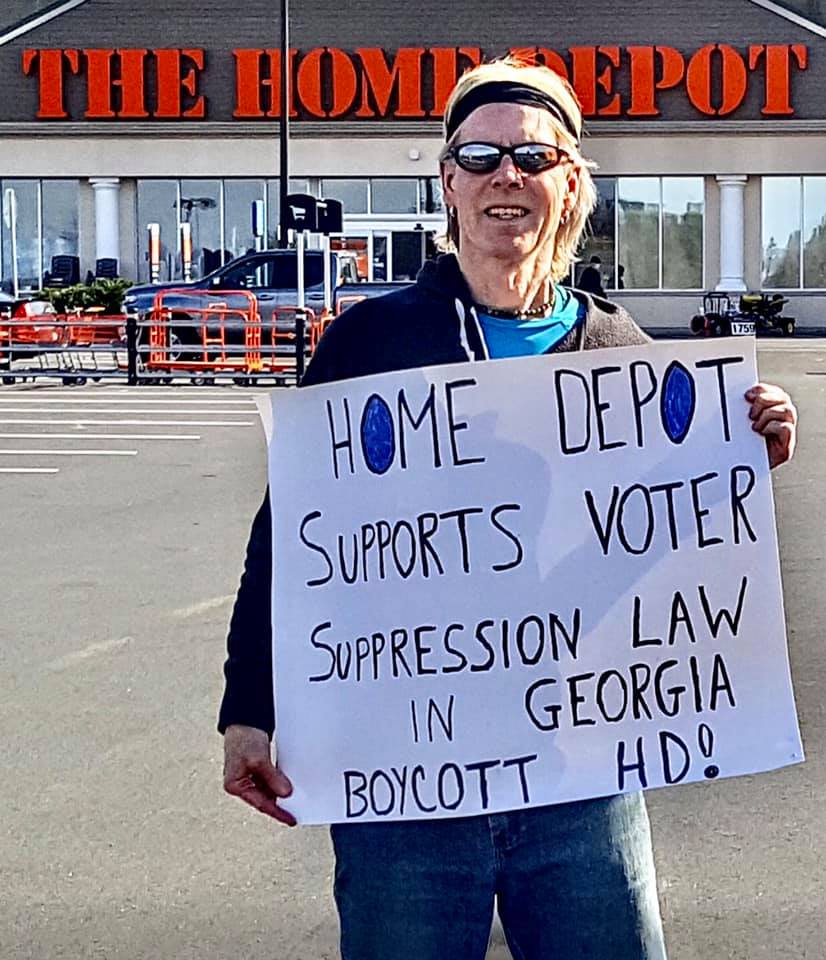 THE HOME DEPOT
HOME DEPOT
SUPPORTS VOTER
SUPPRESSION LAW
IN GEORGIA
BOYCOTT HD!